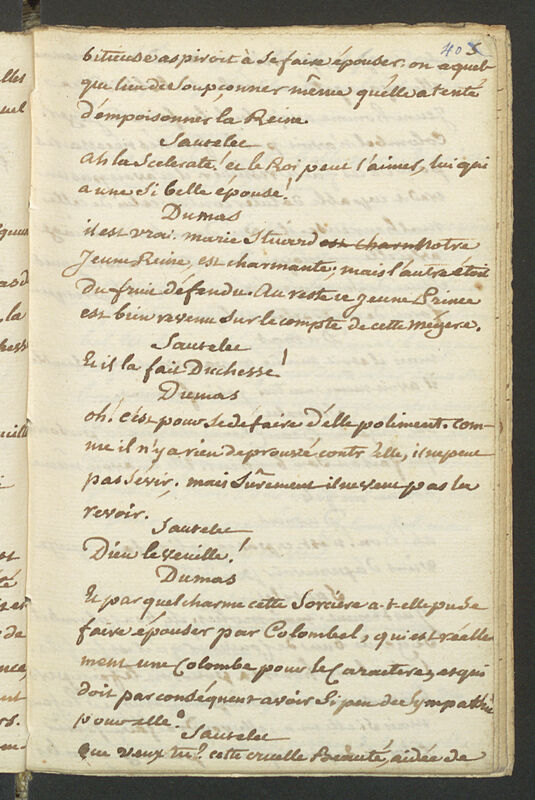 405
bitieuse aspiroit à se faire épouser. on a quel
que lieu de soupçonner même qu'elle a tenté
d'empoisonner la Reine.
Sautelec
ah la Scelerate! et le Roi peut l'aimer, lui qui
a une si belle épouse!
Dumas
il est vrai. marie Stuard est charm notre
Jeune Reine, est charmante; mais l'autre étoit
Du fruit défendu. Au reste ce jeune Prince
est bien revenu sur le compte de cette mégere.
Sautelec
Et il la fait Duchesse!
Dumas
oh! c'est pour se defaire d'elle poliment. Com-
me il n'y a rien de prouvé contr'elle, il ne peut
pas sévir. mais surement il ne veut pas la
revoir.
Sautelec
Dieu le veuille!
Dumas
Et par quel charme cette Sorcière a-t-elle pu se
faire épouser par Colombel, qui est réelle
ment une Colombe pour le Caractere, et qui
doit par conséquent avoir si peu de sympathie
pour elle?
Sautelec
que veux tu? cette cruelle Beauté, aidée de
elles
uel
la
de
nt
rs.